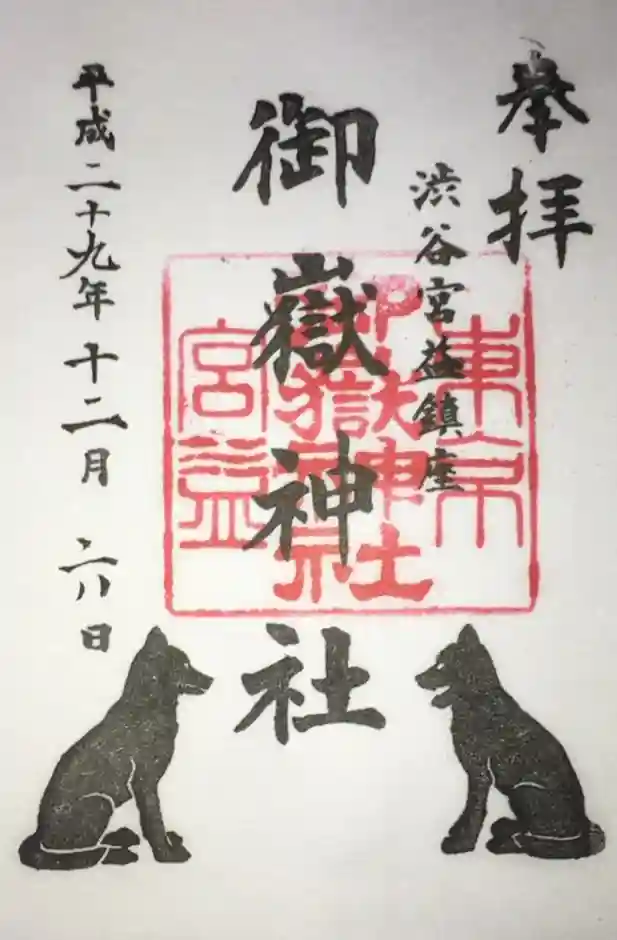 奉拝
渋谷宮益鎮座
御嶽神社
平成二十九年十二月 二八日
東京
御嶽神社
宮益